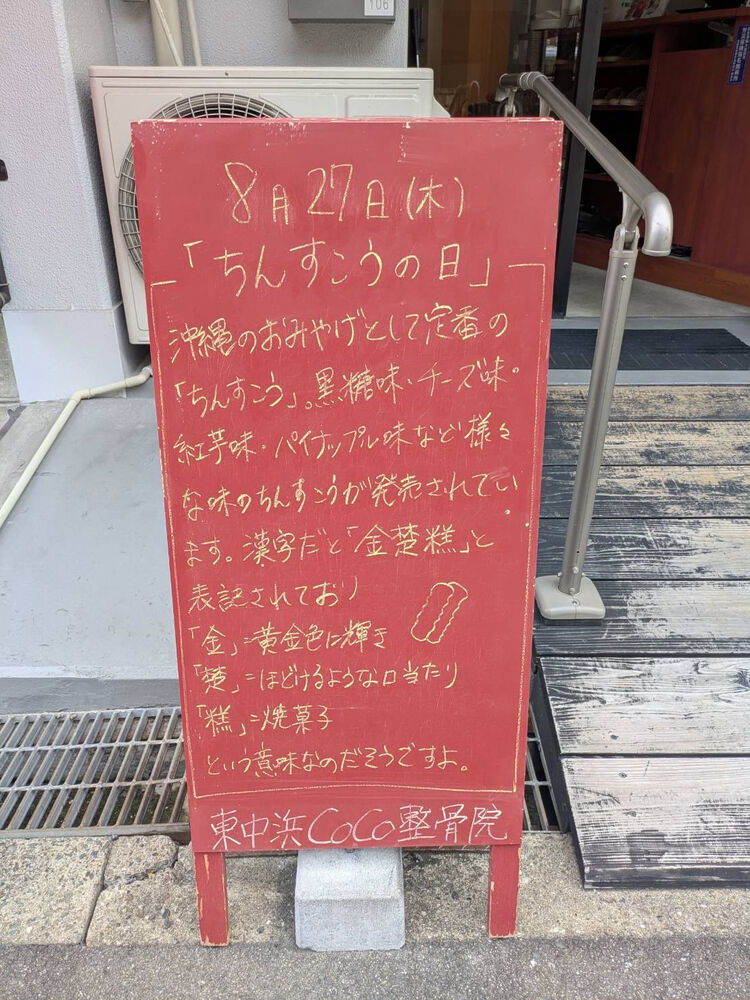 106
8月27日(木)
「ちんすこうの日」
沖縄のおみやげとして定番の
「ちんすこう」。黒糖味・チーズ味・
紅芋味・パイナップル味など様々
な味のちんすこうが発売されてい
ます。漢字だと「金楚糕」と
表記されており
「金」=黄金色に輝き
「楚」=ほどけるような口当たり
「糕」=焼菓子
という意味なのだそうですよ。
東中浜CoCo整骨院